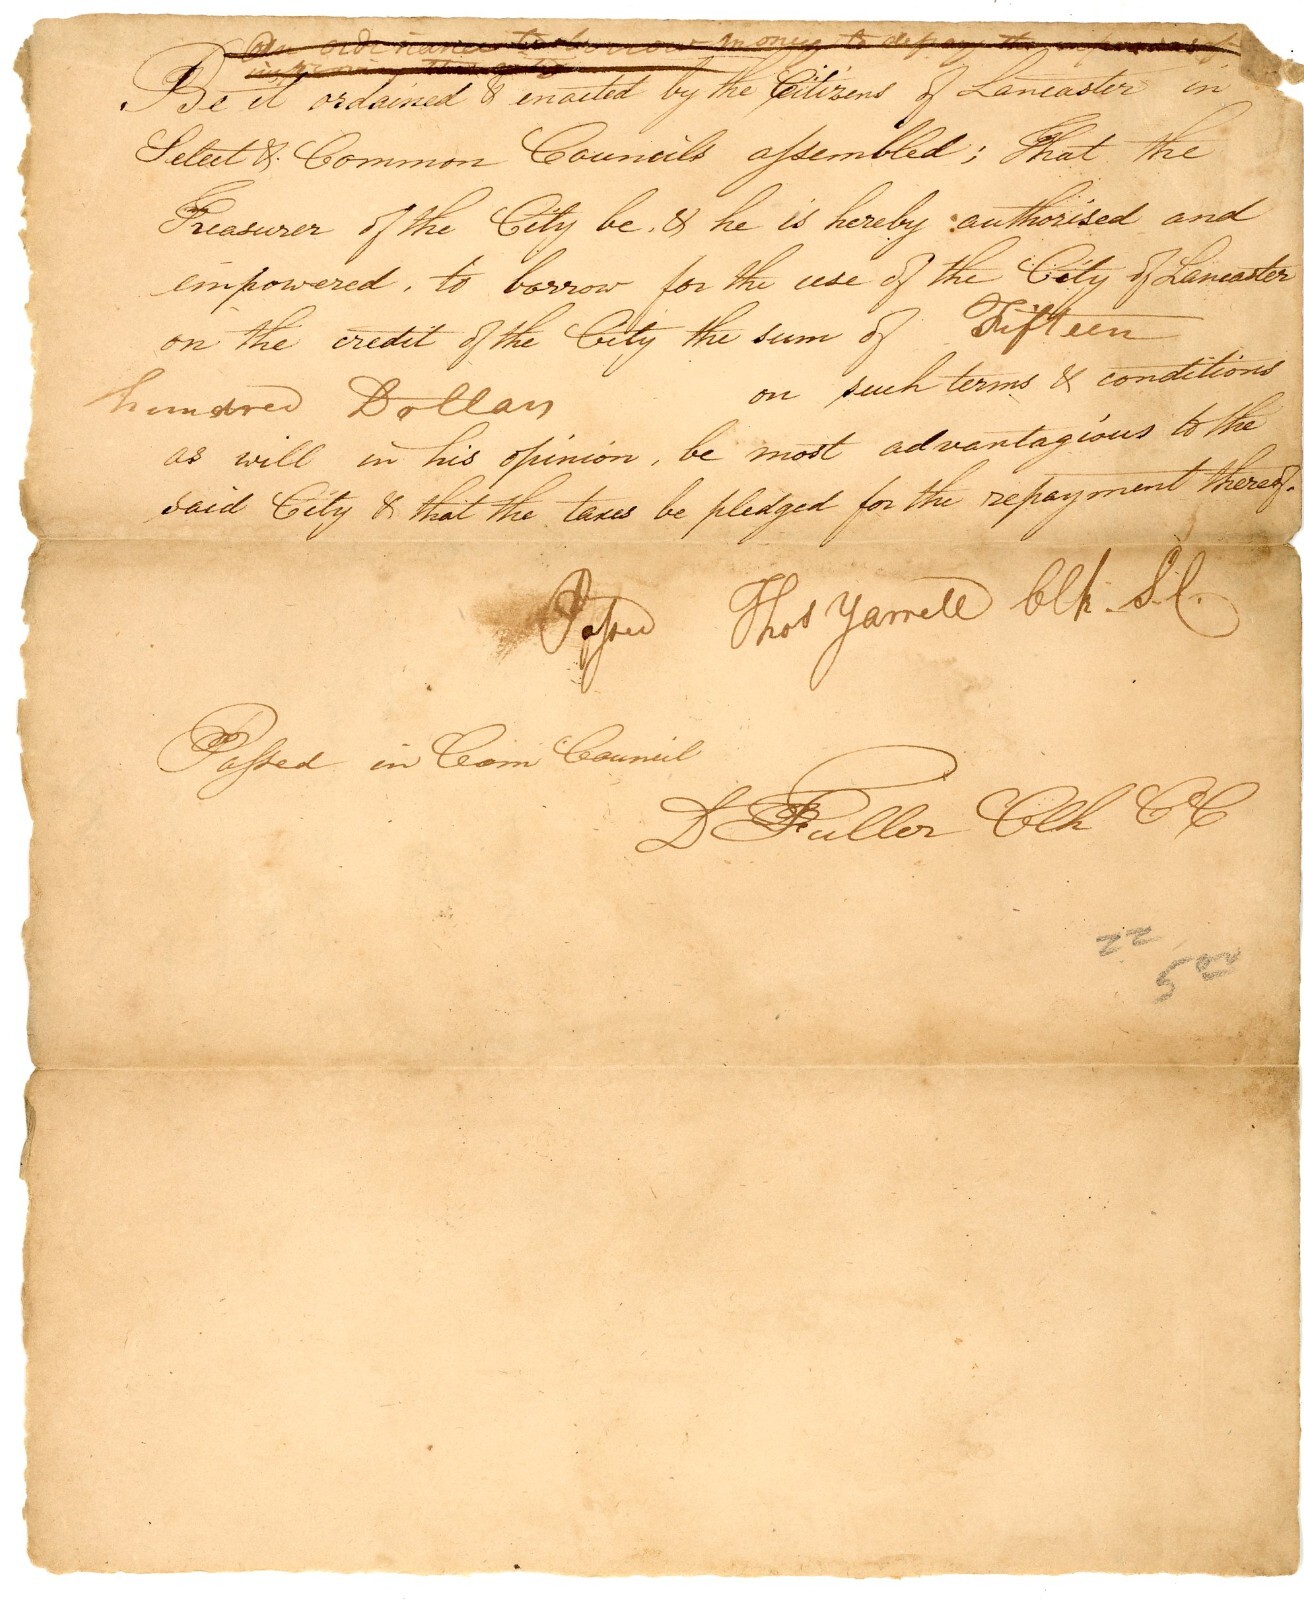 An ordinance to borrow money to defray the expenses of
Be it ordained & enacted by the Citizens of Lancaster in
Select & Common Councils assembled; That the
Treasurer of the City be, & he is hereby authorised and
empowered, to borrow for the use of the City of Lancaster
on the credit of the City the sum of Fifteen
hundred Dollars on such terms & conditions
as will in his opinion, be most advantagious to the
said City & that the taxes be pledged for the repayment thereof.
Passed Thos Yarrell Clk. S.C.
Passed in Com Council
D Fuller Clk CC
22
500